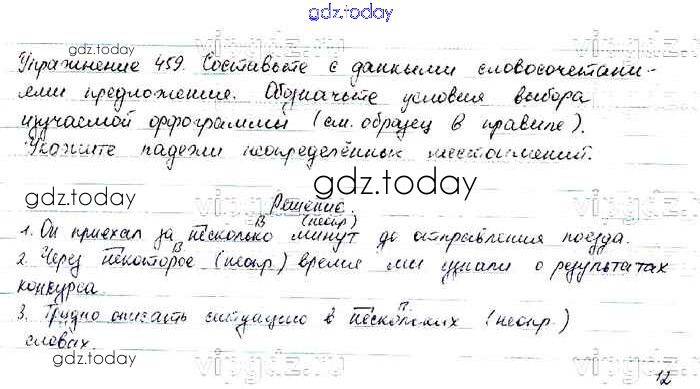 gdz.today
gdz.today
Упражнение 459. Составьте с данными словосочетани-
ями предложения. Обозначьте условия выбора
изучаемой орфограммы (см. образец в правиле).
Укажите падежи неопределённых местоимений.
gdz.today
gdz.today
Решение
В (неопр)
1. Он приехал за несколько минут до отправления поезда.
В
2. Через некоторое (неопр.) время мы узнали о результатах
конкурса.
П
3. Трудно описать ситуацию в нескольких (неопр.)
словах
gdz.today
gdz.today
12